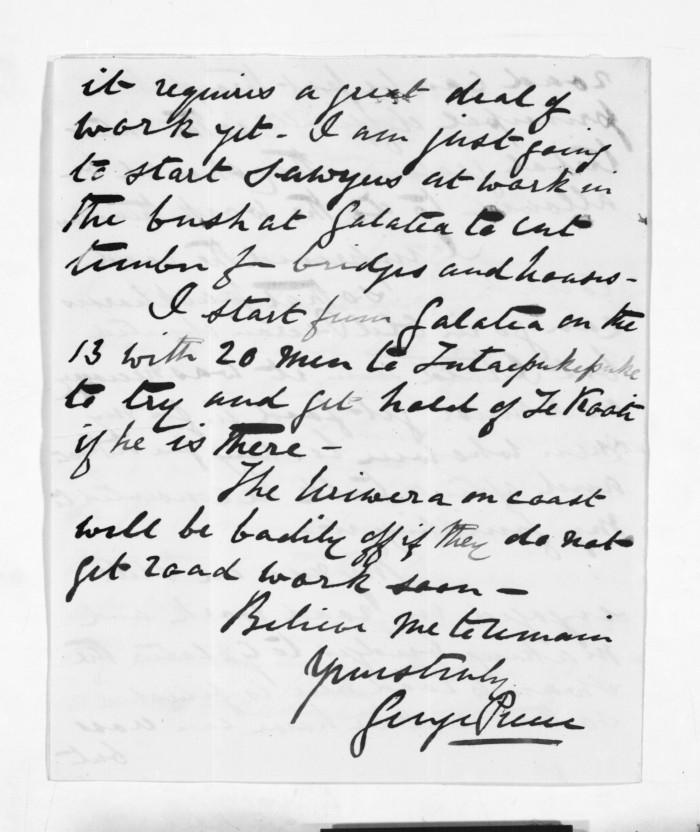 it requires a great deal of
work yet - I am just going
to start Sawyers at work in
the bush at Galatea to cut
timber for bridges and houses -
I start from Galatea on the
13 with 20 men to Tutaepukepuke
to try and get hold of Te Kooti
if he is there -
The Uriwera on coast
will be badily off if they do not
get road work soon -
Believe me to remain
Yours truly
George Preece